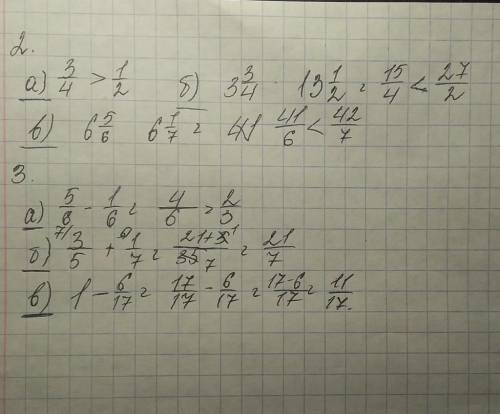 2.
а) 3/4 > 1/2 б) 3 3/4 13 1/2 = 15/4 < 27/2
в) 6 5/6 6 1/7 = 41 41/6 < 42/7
3.
а) 5/6 - 1/6 = 4/6 = 2/3
б) 7/ 3/5 + 1/7 = 21+5 1/35 7 = 21/7
в) 1 - 6/17 = 17/17 - 6/17 = 17-6/17 = 11/17.